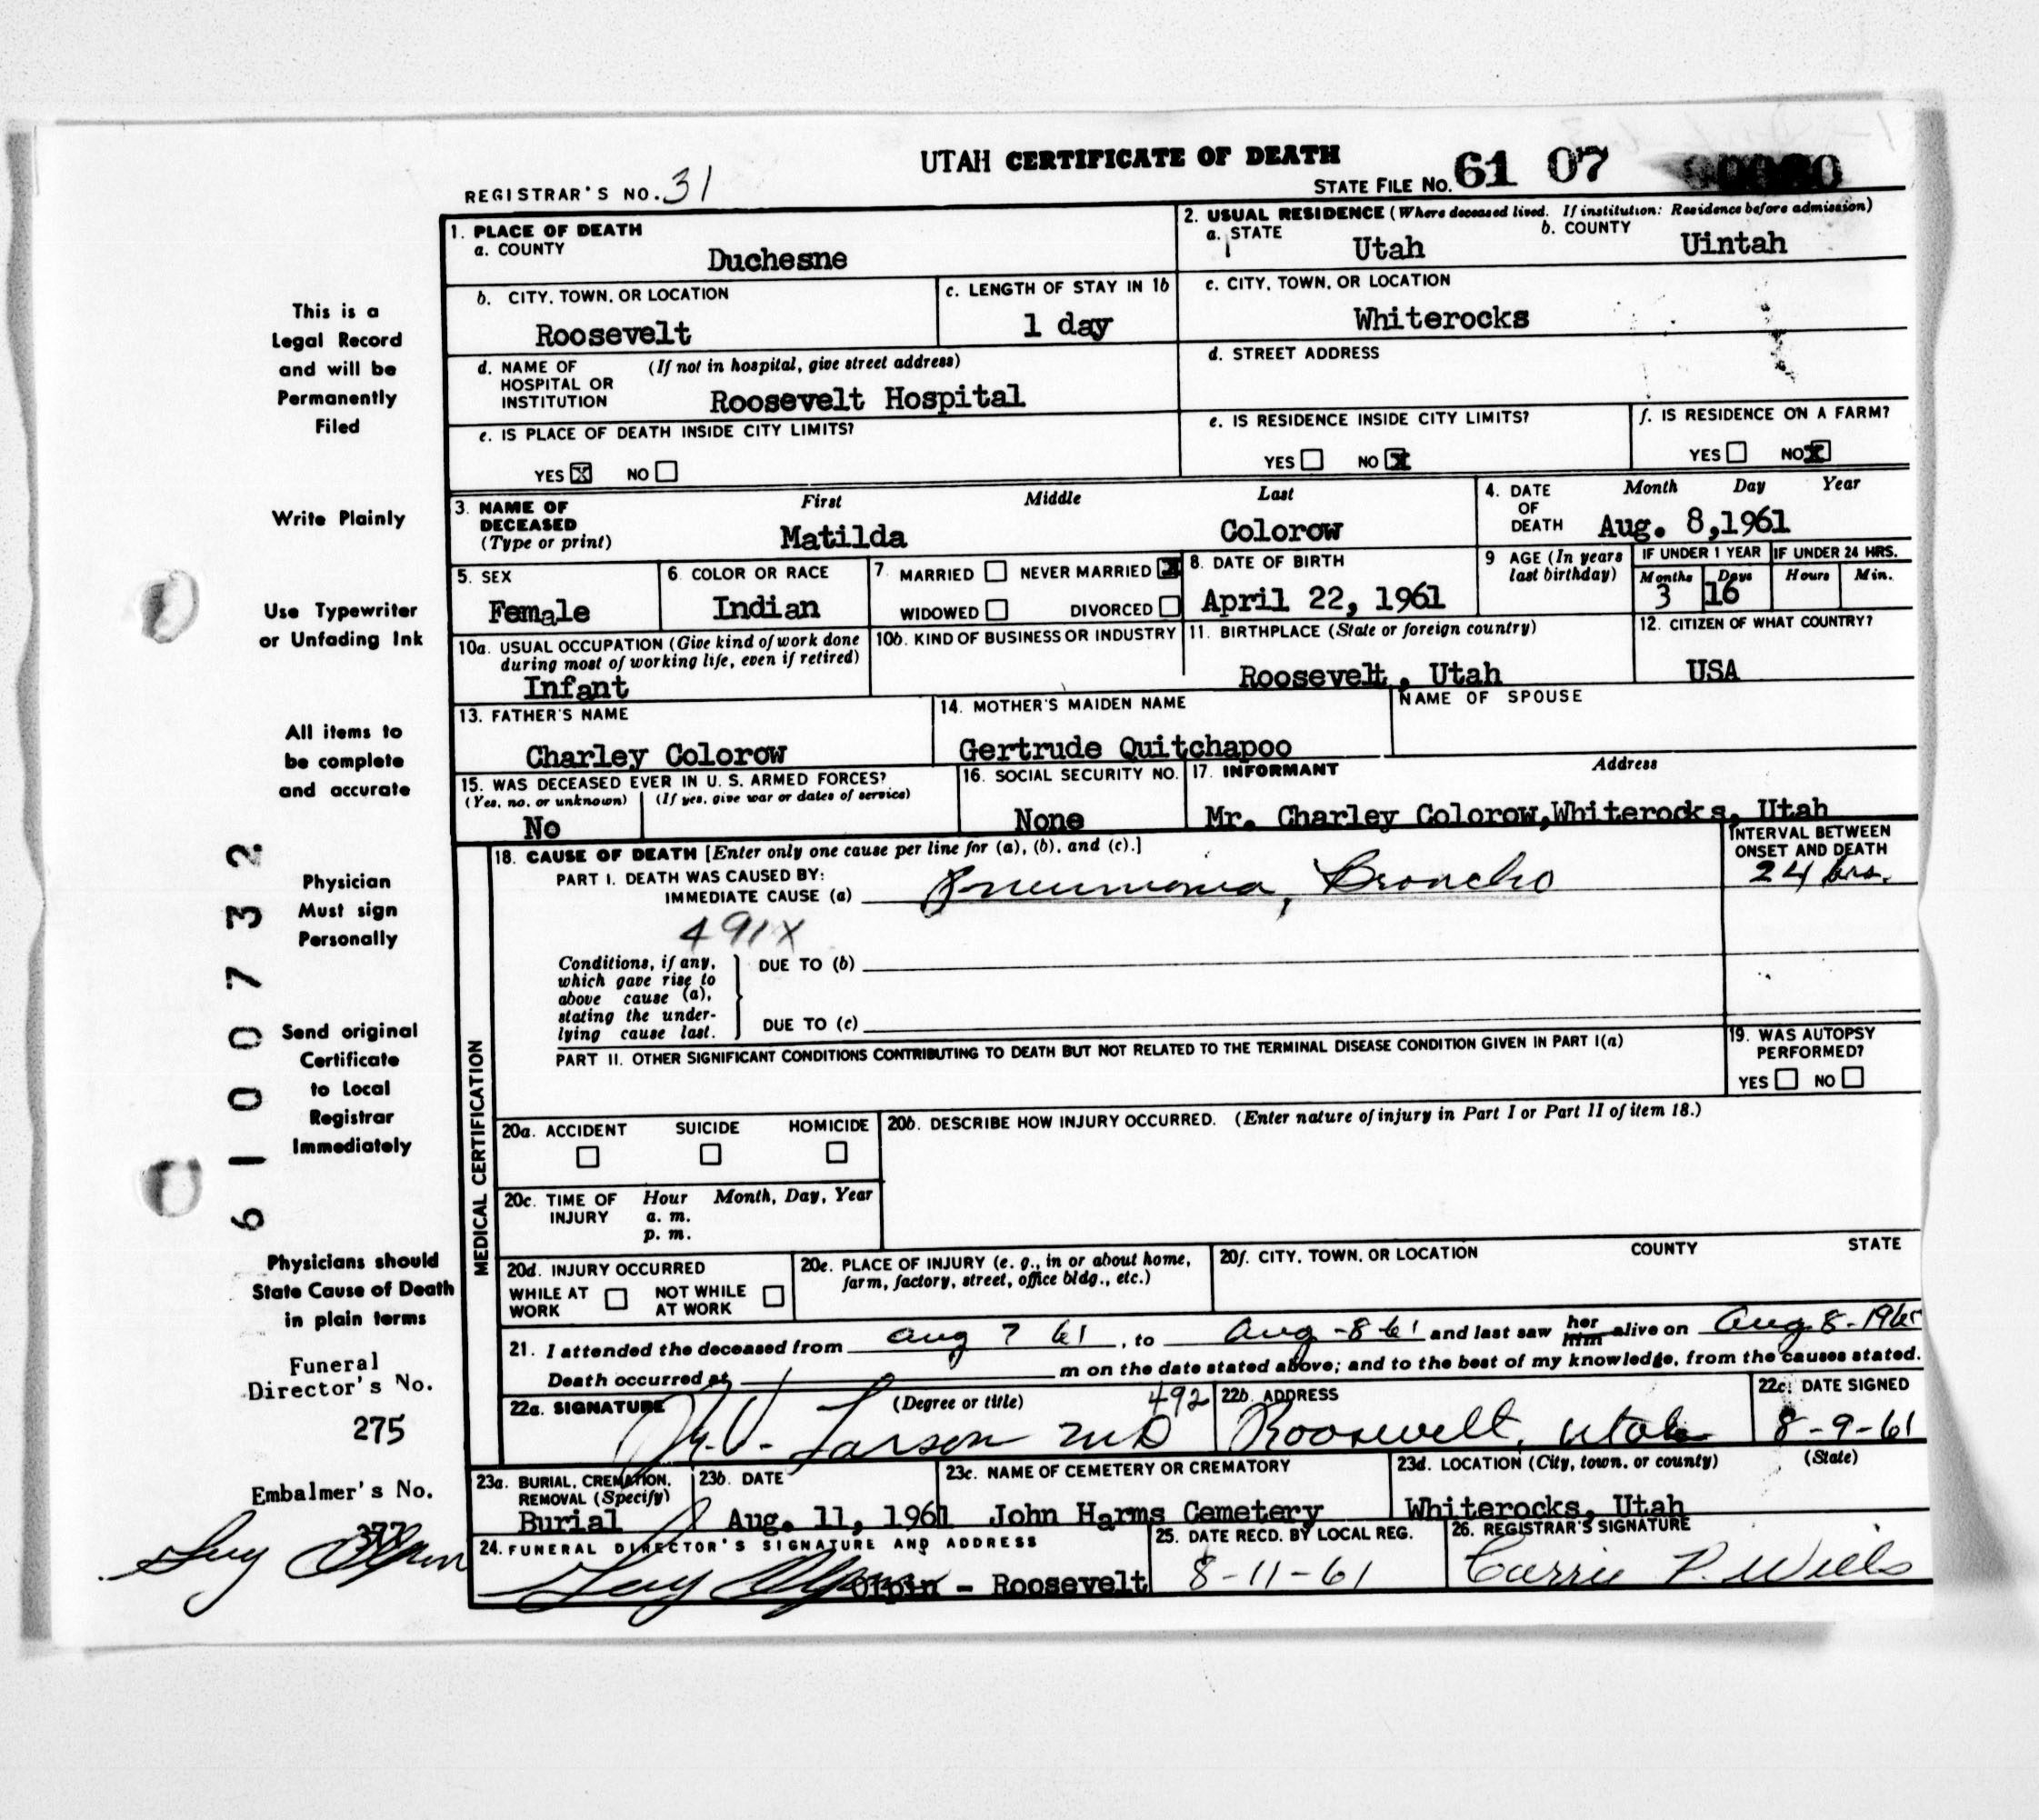 UTAH CERTIFICATE OF DEATH
REGISTRAR'S NO. 31
STATE FILE NO. 61 07
1. PLACE OF DEATH
a. COUNTY
Duchesne
2. USUAL RESIDENCE (Where deceased lived. If institution: Residence before admission)
a. STATE
Utah
b. COUNTY
Uintah
b. CITY, TOWN, OR LOCATION
Roosevelt
c. LENGTH OF STAY IN 1b
1 day
c. CITY, TOWN, OR LOCATION
Whiterocks
d. NAME OF HOSPITAL OR INSTITUTION
(If not in hospital, give street address)
Roosevelt Hospital
d. STREET ADDRESS
e. IS PLACE OF DEATH INSIDE CITY LIMITS?
YES X NO
e. IS RESIDENCE INSIDE CITY LIMITS?
YES NO X
f. IS RESIDENCE ON A FARM?
YES NO X
3. NAME OF DECEASED (Type or print)
First Middle Last
Matilda Colorow
4. DATE OF DEATH
Month Day Year
Aug. 8,1961
5. SEX
Female
6. COLOR OR RACE
Indian
7. MARRIED NEVER MARRIED X
WIDOWED DIVORCED
8. DATE OF BIRTH
April 22, 1961
9 AGE (In years last birthday)
IF UNDER 1 YEAR IF UNDER 24 HRS.
Months Days Hours Min.
3 16
10a. USUAL OCCUPATION (Give kind of work done during most of working life, even if retired)
Infant
10b. KIND OF BUSINESS OR INDUSTRY
11. BIRTHPLACE (State or foreign country)
Roosevelt, Utah
12. CITIZEN OF WHAT COUNTRY?
USA
13. FATHER'S NAME
Charley Colorow
14. MOTHER'S MAIDEN NAME
Gertrude Quitchapoo
NAME OF SPOUSE
15. WAS DECEASED EVER IN U. S. ARMED FORCES?
(Yes, no, or unknown) (If yes, give war or dates of service)
No
16. SOCIAL SECURITY NO.
None
17. INFORMANT Address
Mr. Charley Colorow,Whiterocks, Utah
18. CAUSE OF DEATH [Enter only one cause per line for (a), (b), and (c).]
PART I. DEATH WAS CAUSED BY:
IMMEDIATE CAUSE (a) Pneumonia, Broncho
INTERVAL BETWEEN ONSET AND DEATH
24 hrs.
491X
Conditions, if any, which gave rise to above cause (a), stating the underlying cause last.
DUE TO (b)
DUE TO (c)
PART II. OTHER SIGNIFICANT CONDITIONS CONTRIBUTING TO DEATH BUT NOT RELATED TO THE TERMINAL DISEASE CONDITION GIVEN IN PART I(a)
19. WAS AUTOPSY PERFORMED?
YES NO
MEDICAL CERTIFICATION
20a. ACCIDENT SUICIDE HOMICIDE
20b. DESCRIBE HOW INJURY OCCURRED. (Enter nature of injury in Part I or Part II of item 18.)
20c. TIME OF INJURY
Hour Month, Day, Year
a. m.
p. m.
20d. INJURY OCCURRED
WHILE AT WORK NOT WHILE AT WORK
20e. PLACE OF INJURY (e. g., in or about home, farm, factory, street, office bldg., etc.)
20f. CITY, TOWN, OR LOCATION COUNTY STATE
21. I attended the deceased from Aug 7 61, to Aug-8-61 and last saw her him alive on Aug 8-1961
Death occurred at m on the date stated above; and to the best of my knowledge, from the causes stated.
22a. SIGNATURE (Degree or title)
Larson MD
492
22b. ADDRESS
Roosevelt, Utah
22c. DATE SIGNED
8-9-61
23a. BURIAL, CREMATION, REMOVAL (Specify)
Burial
23b. DATE
Aug. 11, 1961
23c. NAME OF CEMETERY OR CREMATORY
John Harms Cemetery
23d. LOCATION (City, town, or county) (State)
Whiterocks, Utah
24. FUNERAL DIRECTOR'S SIGNATURE AND ADDRESS
Olpin - Roosevelt
25. DATE RECD. BY LOCAL REG.
8-11-61
26. REGISTRAR'S SIGNATURE
Carrie P. Wells
This is a
Legal Record
and will be
Permanently
Filed
Write Plainly
Use Typewriter
or Unfading Ink
All items to
be complete
and accurate
Physician
Must sign
Personally
Send original
Certificate
to Local
Registrar
Immediately
Physicians should
State Cause of Death
in plain terms
Funeral
Director's No.
275
Embalmer's No.
377
6100732